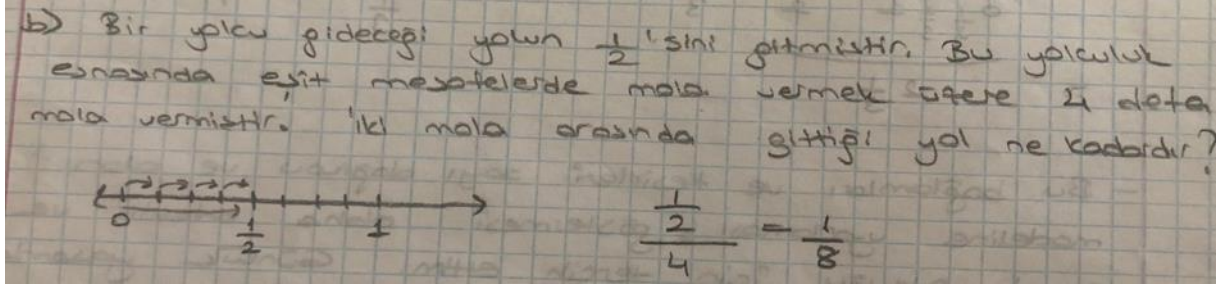 b) Bir yolcu gideceği yolun 1/2 'sini gitmiştir. Bu yolculuk
esnasında eşit mesafelerde mola vermek üzere 4 defa
mola vermiştir. İki mola arasında gittiği yol ne kadardır?
0 1/2 1
1/2 / 4 = 1/8